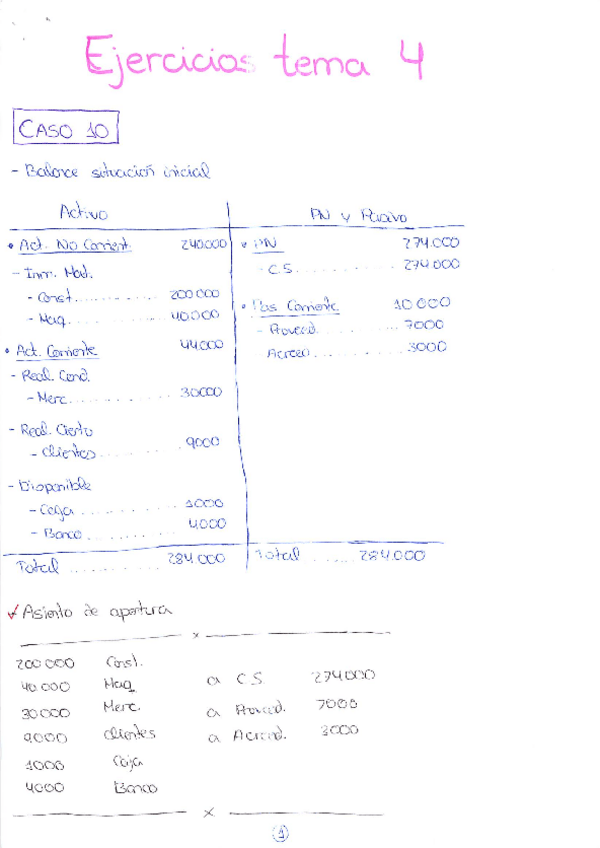 Ejercicios tema 4
CASO 10
- Balance situación inicial
Activo PN y Pasivo
• Act. No Corrient. 240.000
- Inm. Mat.
- Const. 200 000
- Maq. 40.000
• Act. Corriente 44.000
- Real. Cond.
- Merc. 30000
- Real. Cierto
- Clientes 9000
- Disponible
- Caja 1000
- Banco 4000
Total 284.000
• PN 274.000
- C.S. 274.000
• Pas. Corriente 10 000
- Proveed. 7000
Acreed. 3000
Total 284.000
✓ Asiento de apertura
x
200 000 Const.
40.000 Maq a C.S. 274000
30000 Merc. a Proveed. 7000
9000 Clientes a Acreed. 3000
1000 Caja
4000 Banco
x
1